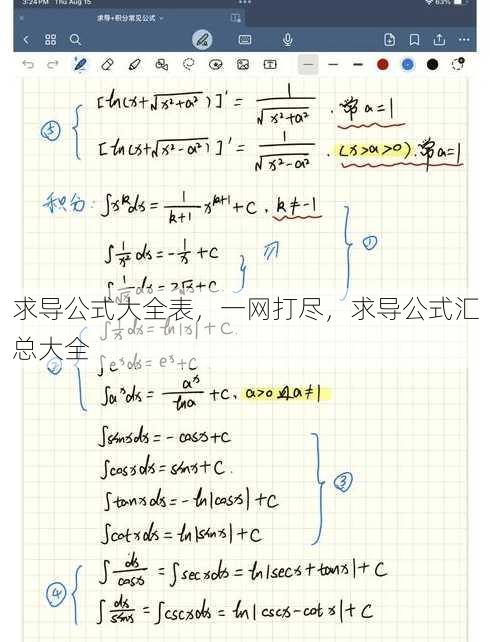 3:24 PM Thu Aug 15
63%
求导+积分常见公式
⑤ [ln(x+√x²+a²)]' = 1/√x²+a² . 常a=1
[ln(x+√x²-a²)]' = 1/√x²-a² . (x>a>0).常a=1
积分: ∫x^k dx = 1/k+1 x^k+1 + C, k≠-1
①
∫1/x² dx = -1/x + C
∫1/√x dx = 2√x + C
求导公式大全表，一网打尽，求导公式汇
总大全
∫1/x dx = ln|x| + C.
② ∫e^x dx = e^x + C.
∫a^x dx = a^x/lna + C, a>0且a≠1
∫sinxdx = -cosx+C
∫cosxdx = sinx+C.
③
∫tanxdx = -ln|cosx|+C
∫cotxdx = ln|sinx|+C
④ ∫dx/cosx = ∫secxdx = ln|secx+tanx|+C
∫dx/sinx = ∫cscxdx = ln|cscx-cotx|+C